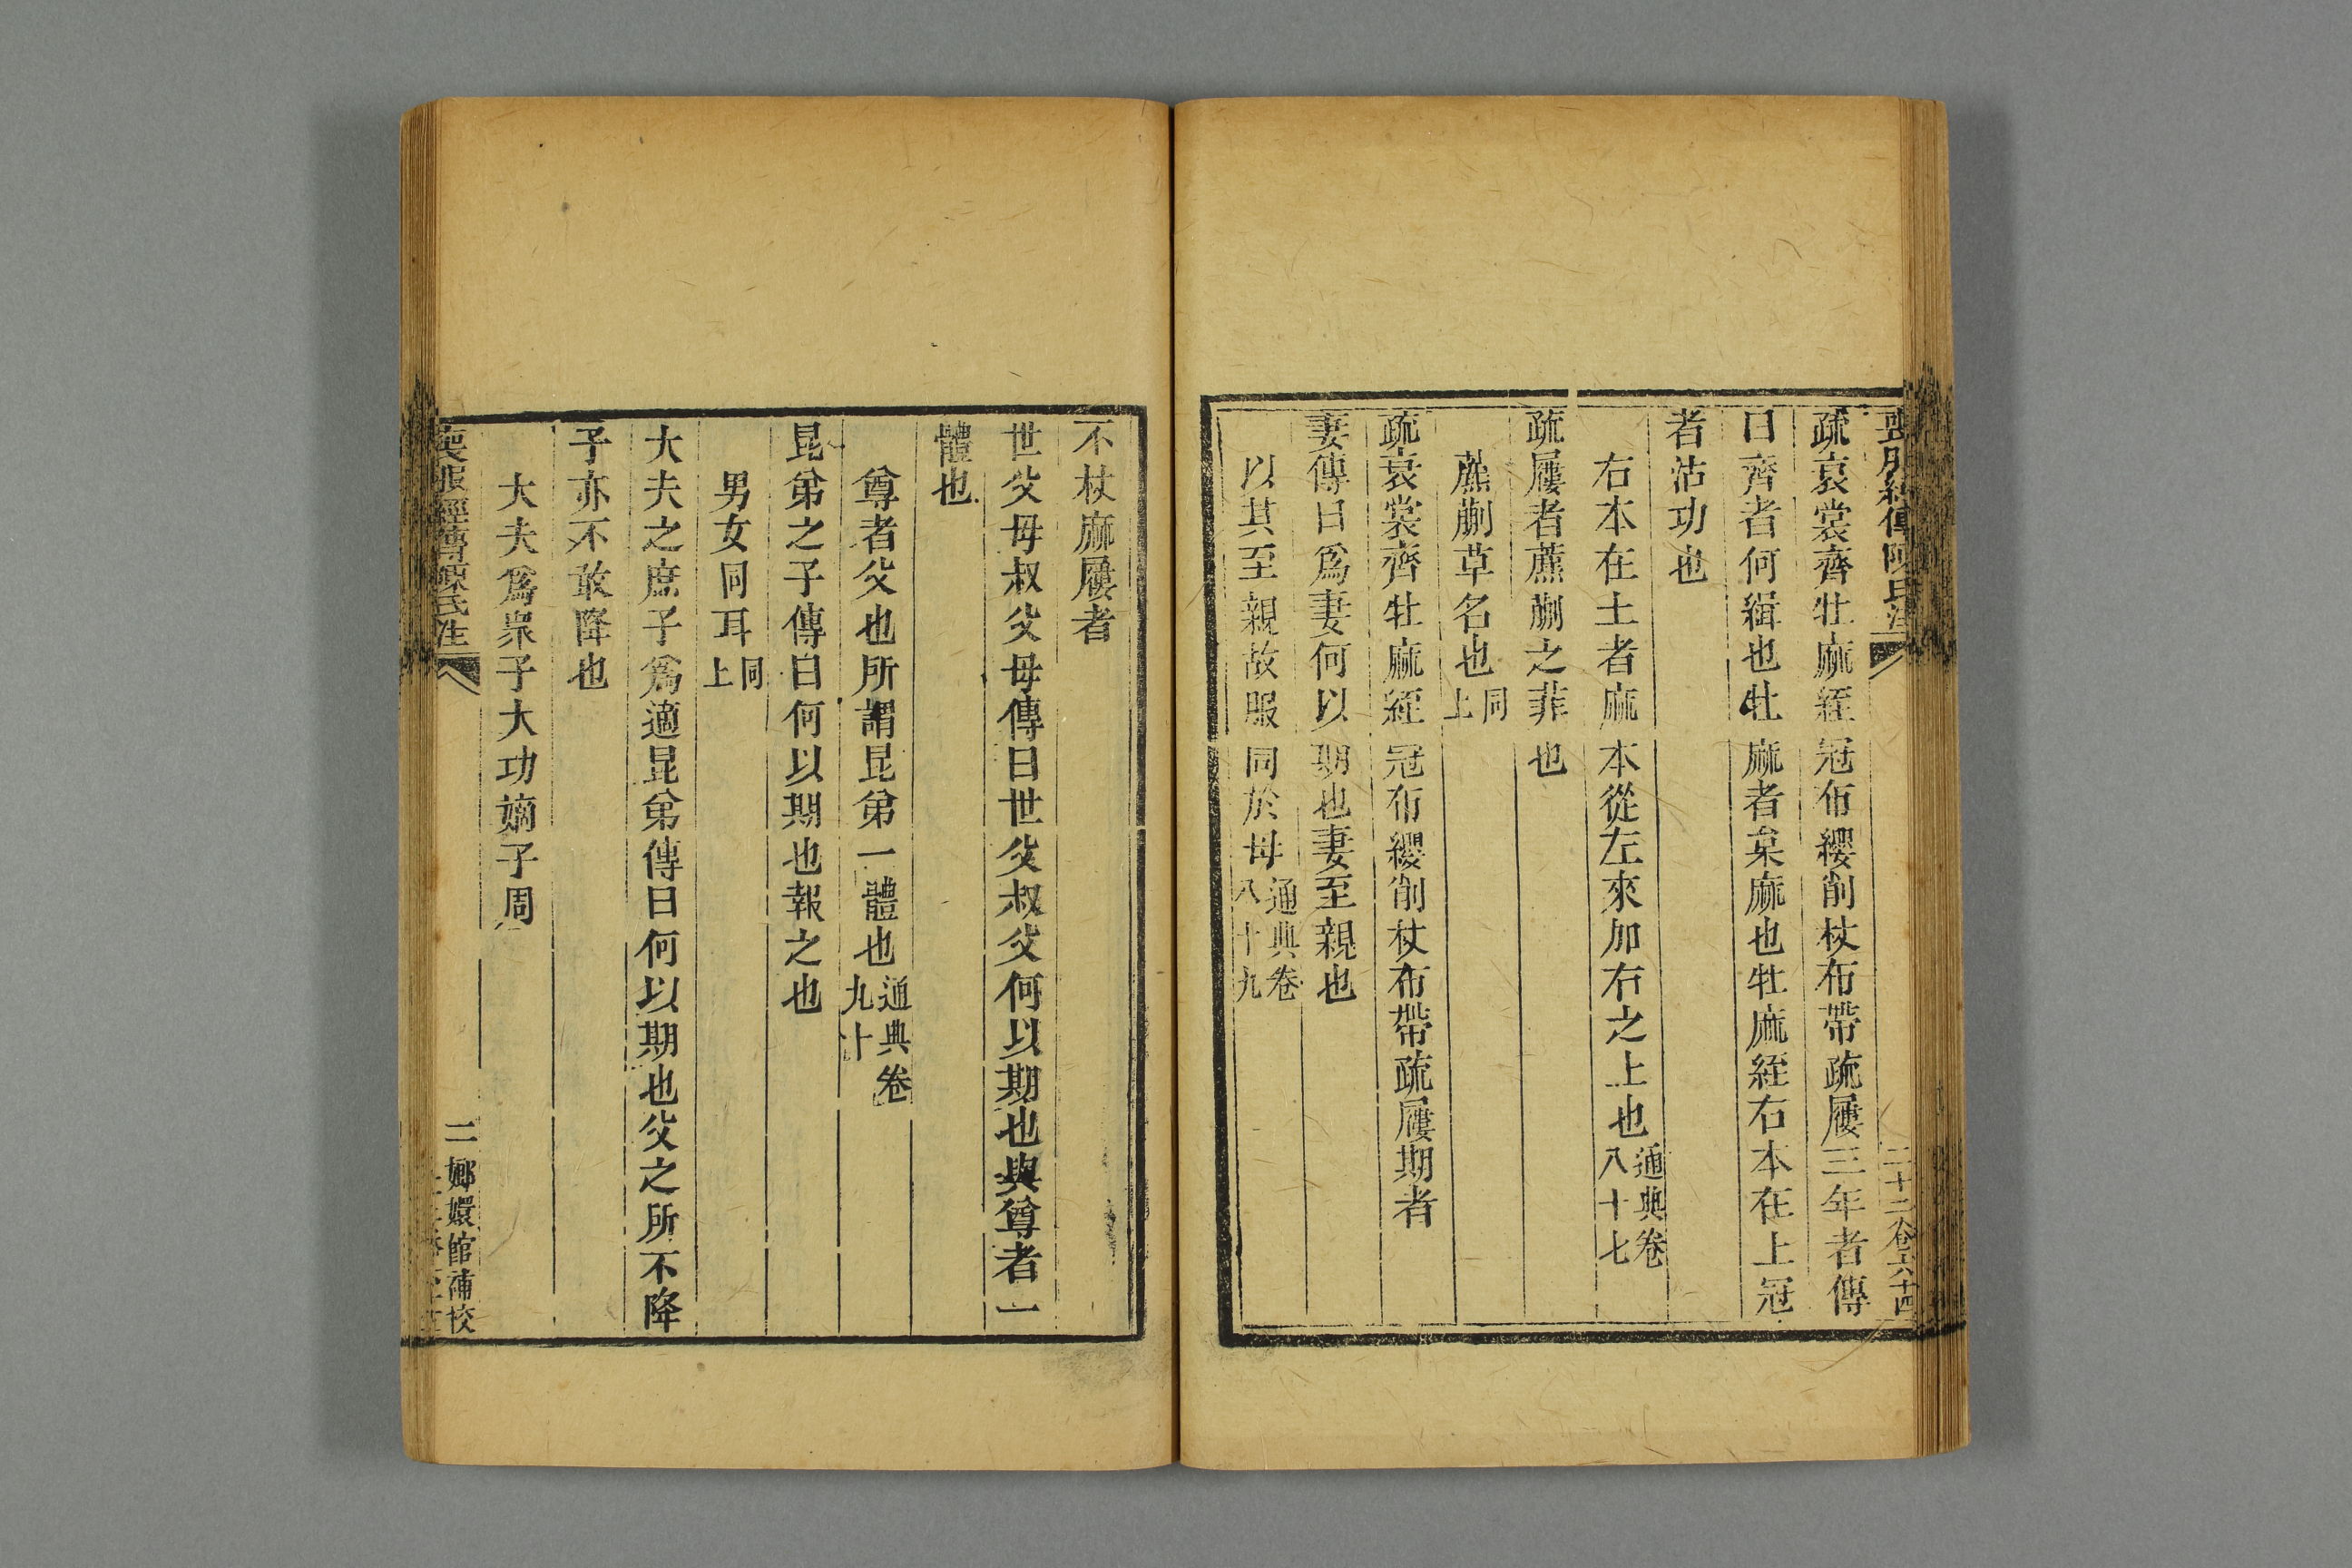 疏衰裳齊牡麻絰冠布纓削杖布帶疏屨三年者傳
曰齊者何緝也牡麻者枲麻也牡麻絰右本在上冠
者沽功也
右本在土者麻本從左來加右之上也通典卷八十七
疏屨者藨蒯之菲也
藨蒯草名也同上
疏衰裳齊牡麻絰冠布纓削杖布帶疏屨期者
妻傳曰爲妻何以期也妻至親也
以其至親故服同於母通典卷八十九
不杖麻屨者
世父母叔父母傳曰世父叔父何以期也與尊者一
體也
尊者父也所謂昆弟一體也通典卷九十
昆弟之子傳曰何以期也報之也
男女同耳同上
大夫之庶子爲適昆弟傳曰何以期也父之所不降
子亦不敢降也
大夫爲衆子大功嫡子周
喪服經傳陳氏注
二
嫏嬛館補校